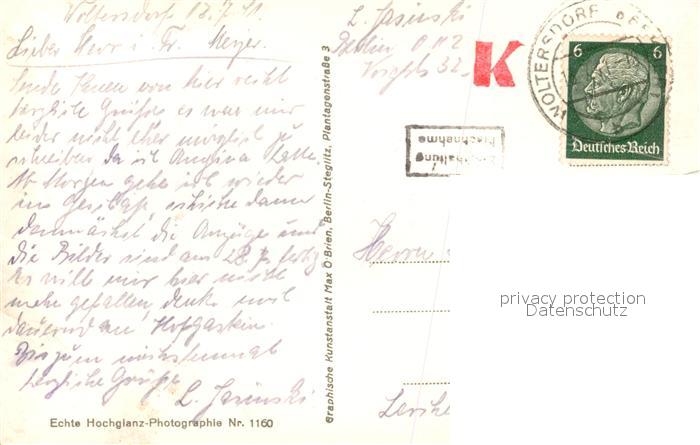 Woltersdorf 13.7.41.
Lieber Herr u. Fr. Meyer.
Sende Ihnen von hier recht
herzliche Grüße es war mir
leider nicht eher möglich zu
schreiben da ich Angina hatte.
Morgen gehe ich wieder
ins Geschäft, schicke dann
demnächst die Anzüge und
die Bilder sind am 28.7. fertig
Es will mir hier nicht
mehr gefallen, denke noch
dauernd an Hofgastein.
Bis zum nächstenmal
herzliche Grüße
L. Jasinski
Echte Hochglanz-Photographie Nr. 1160
Graphische Kunstanstalt Max O'Brien, Berlin-Steglitz, Plantagenstraße 3
L. Jasinski
Berlin O 112
Voigtstr. 32
K
WOLTERSDORF
6 6
Deutsches Reich
Herrn
privacy protection
Datenschutz